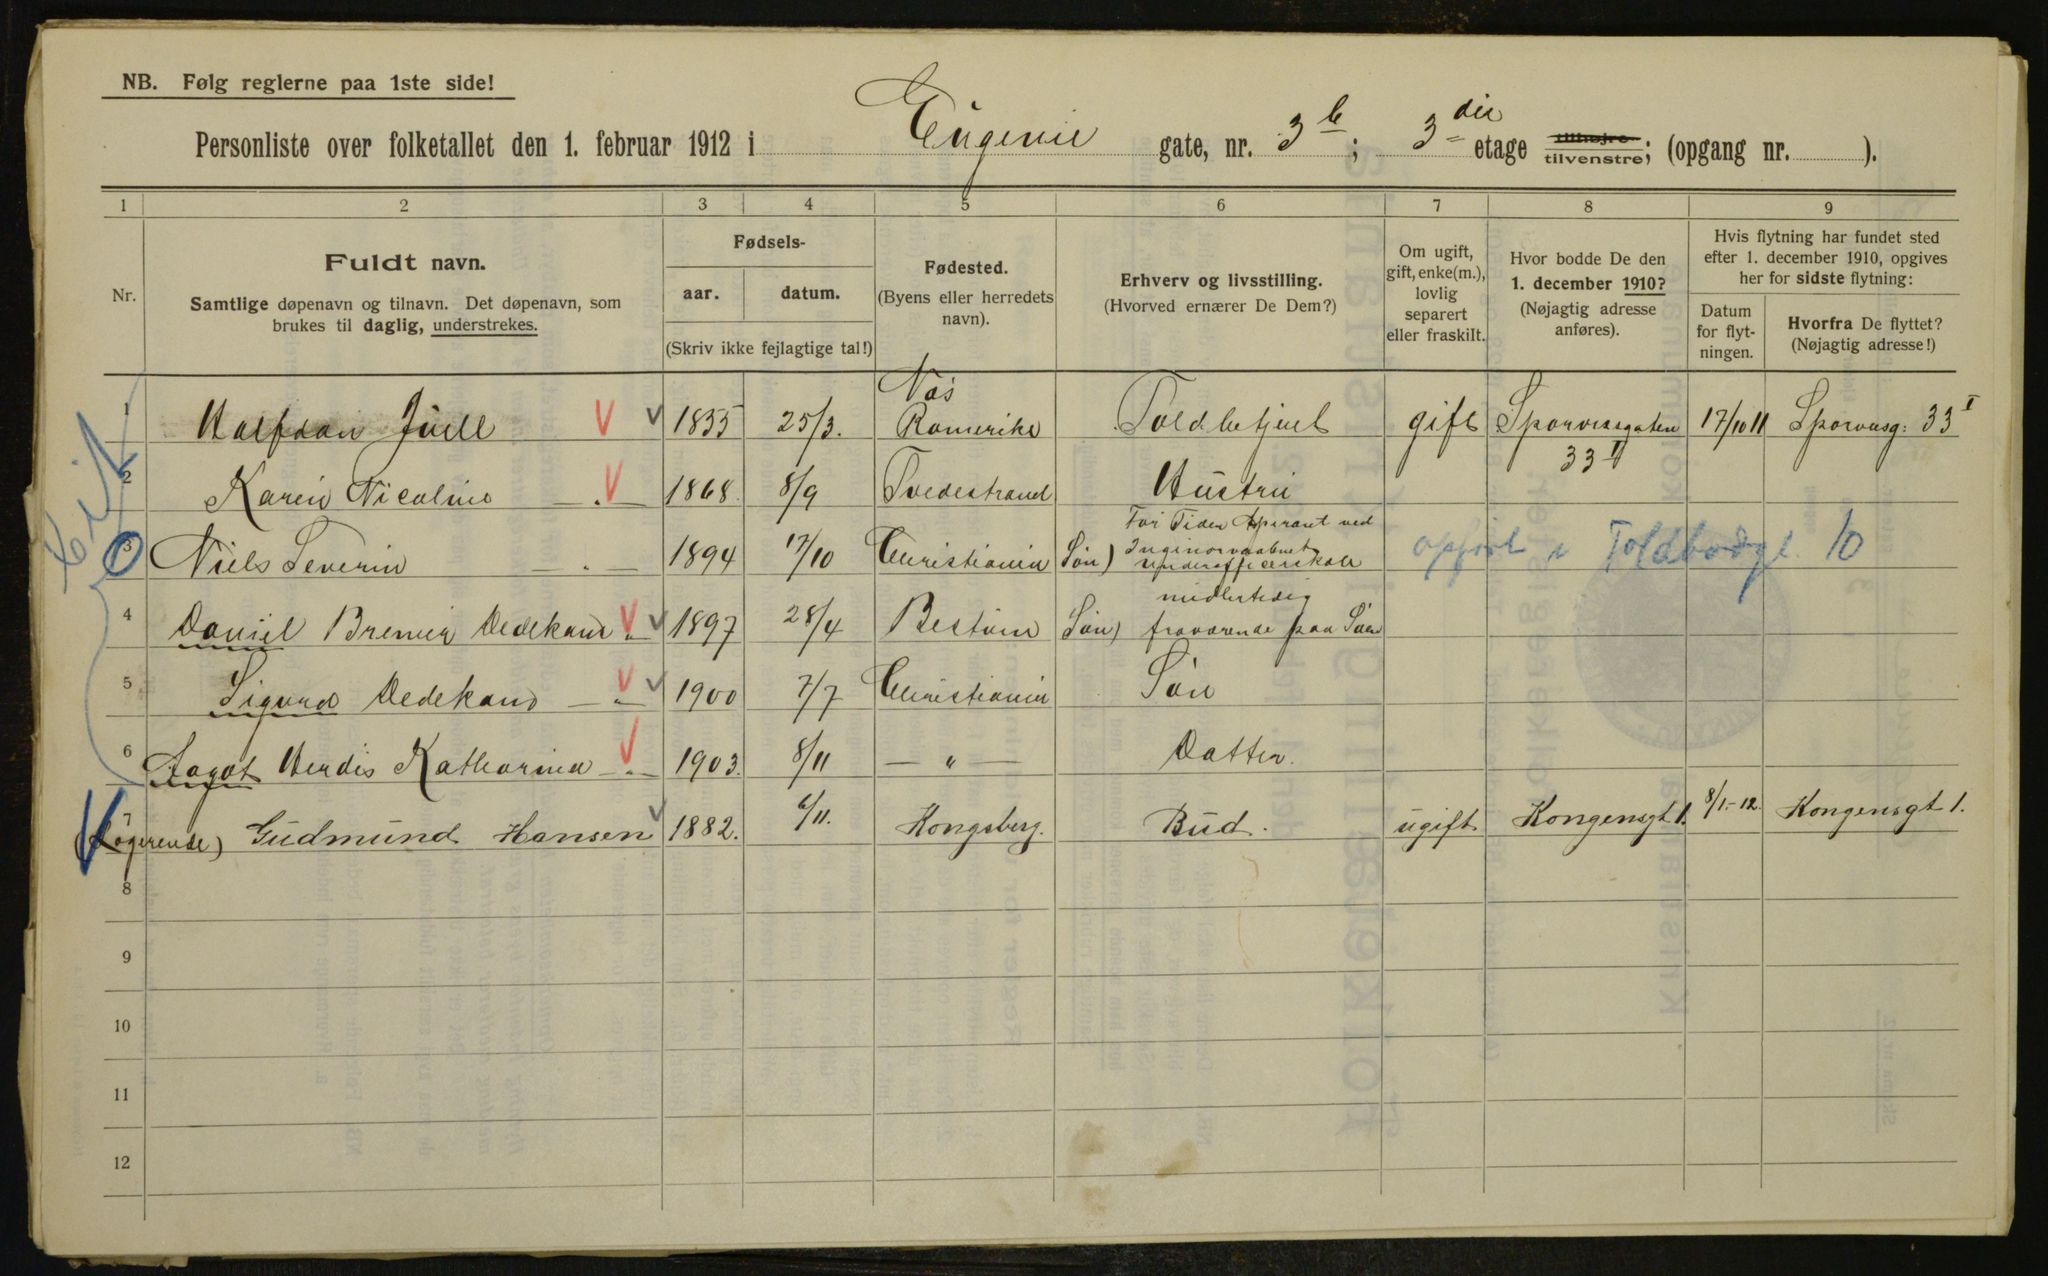 NB. Følg reglerne paa 1ste side!
Personliste over folketallet den 1. februar 1912 i Eugenie gate, nr. 3b; 3die etage tilhøjre tilvenstre; (opgang nr. ).
1 2 3 4 5 6 7 8 9
Nr.
Fuldt navn.
Samtlige døpenavn og tilnavn. Det døpenavn, som
brukes til daglig, understrekes.
Fødsels-
aar. datum.
(Skriv ikke fejlagtige tal!)
Fødested.
(Byens eller herredets
navn).
Erhverv og livsstilling.
(Hvorved ernærer De Dem?)
Om ugift,
gift, enke(m.),
lovlig
separert
eller fraskilt.
Hvor bodde De den
1. december 1910?
(Nøjagtig adresse
anføres).
Hvis flytning har fundet sted
efter 1. december 1910, opgives
her for sidste flytning:
Datum
for flyt-
ningen.
Hvorfra De flyttet?
(Nøjagtig adresse!)
1 Halfdan Juell 1855 25/3. Næs Romerike Toldbetjent gift Sporveisgaten 33 II 17/10 11 Sporveisg: 33 I
2 Karen Nicoline — " — 1868. 8/9 Tvedestrand Hustru
3 Niels Severin — " — 1894 17/10 Christiania Søn) For Tiden Aspirant ved
Ingeniørvaabnets
Underofficerskole
opført i Toldbodgt. 10
4 Daniel Bremer Dedekam " 1897 28/4 Bestum Søn) midlertidig
fraværende paa Søen
5 Sigurd Dedekam — " — 1900 7/7 Christiania Søn
6 Aagot Herdis Katharina — " — 1903. 8/11 — " — Datter.
7 (Logerende) Gudmund Hansen 1882. 6/11. Kongsberg. Bud. ugift Kongensgt 1. 8/1.-12. Kongensgt 1.
8
9
10
11
12